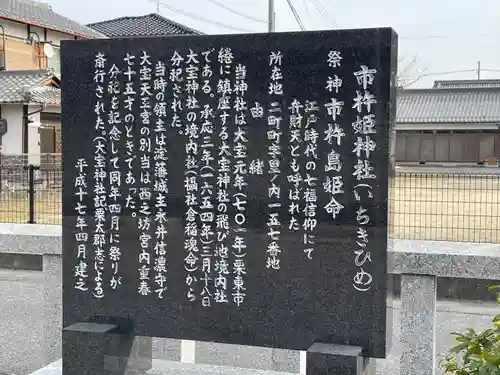 市杵姫神社(いちきひめ)
祭神 市杵島姫命
江戸時代の七福信仰にて
弁財天とも呼ばれた
所在地 二町町字里ノ内一五七番地
由緒
当神社は大宝元年(七〇一年)栗東市
綣に鎮座する大宝神社の飛び地境内社
である。承応三年(一六五四年)三月十八日
大宝神社の境内社(福社倉稲魂命)から
分祀された。
当時の領主は淀藩城主永井信濃守で
大宝天王宮の別当は西之坊宮内重春
七十五才のときであった。
分祀を記念して同年四月に祭りが
斎行された。(大宝神社記栗太郡志による)
平成十七年四月建之